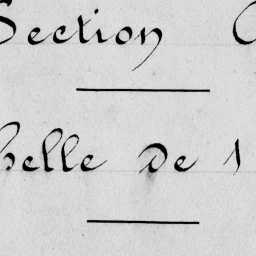 Section
helle de 1